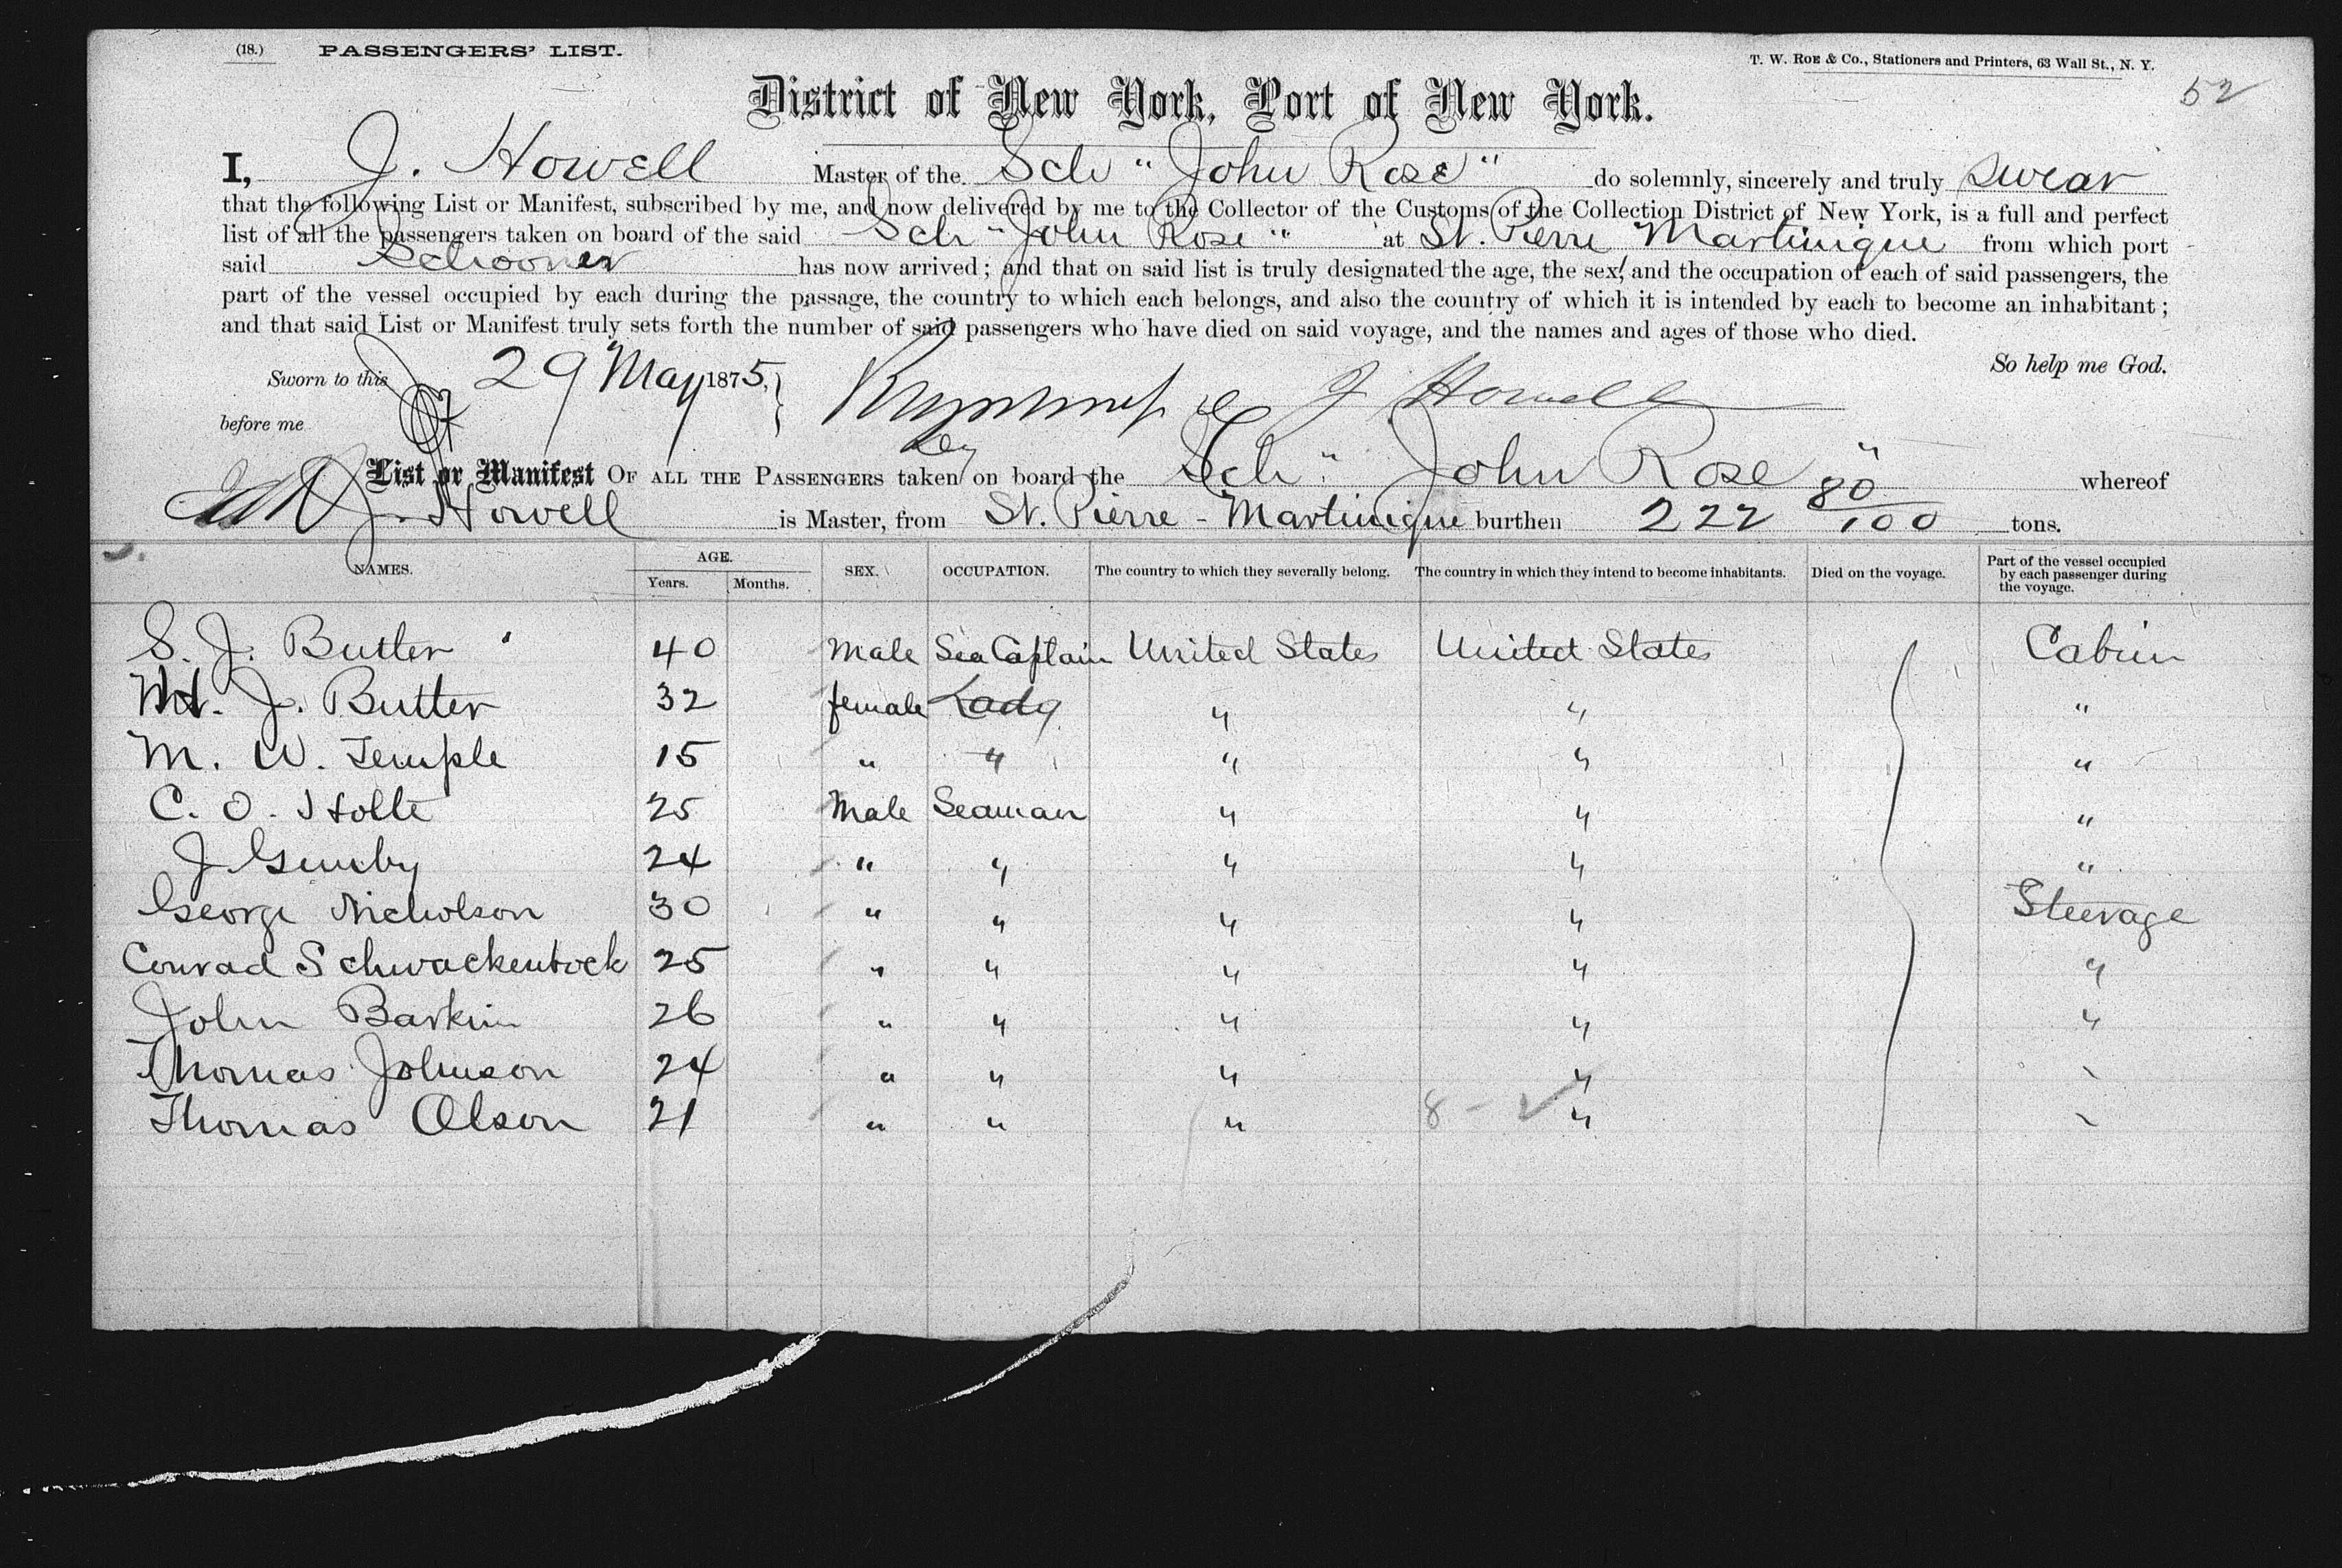 (18.) PASSENGERS' LIST. T. W. ROE & Co., Stationers and Printers, 63 Wall St., N. Y.
52
District of New York, Port of New York.
I, J. Howell Master of the Sch " John Rose " do solemnly, sincerely and truly swear
that the following List or Manifest, subscribed by me, and now delivered by me to the Collector of the Customs of the Collection District of New York, is a full and perfect
list of all the passengers taken on board of the said Sch " John Rose " at St. Pierre Martinique from which port
said Schooner has now arrived; and that on said list is truly designated the age, the sex, and the occupation of each of said passengers, the
part of the vessel occupied by each during the passage, the country to which each belongs, and also the country of which it is intended by each to become an inhabitant;
and that said List or Manifest truly sets forth the number of said passengers who have died on said voyage, and the names and ages of those who died.
So help me God.
Sworn to this 29 May 1875, J Howell
before me
List or Manifest OF ALL THE PASSENGERS taken on board the Sch " John Rose " whereof
J. Howell is Master, from St. Pierre - Martinique burthen 222 80/100 tons.
NAMES. AGE. Years. Months. SEX. OCCUPATION. The country to which they severally belong. The country in which they intend to become inhabitants. Died on the voyage. Part of the vessel occupied by each passenger during the voyage.
S. J. Butler 40 Male Sea Captain United States United States Cabin
J. Butler 32 female Lady " " "
M. W. Temple 15 " " " " "
C. O. Holte 25 Male Seaman " " "
J 24 " " " " "
George Nicholson 30 " " " " Steerage
Conrad Schwackenbock 25 " " " " "
John Barkin 26 " " " " "
Thomas Johnson 24 " " " " \
Thomas Olson 21 " " " 8 - ✓ " \